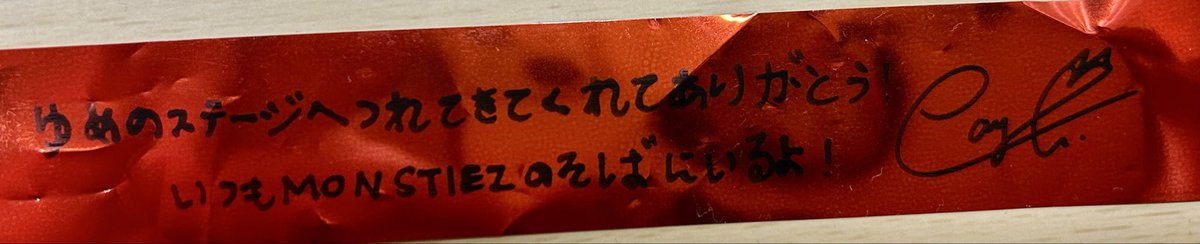 ゆめのステージへつれてきてくれてありがとう!
いつもMONSTIEZのそばにいるよ!